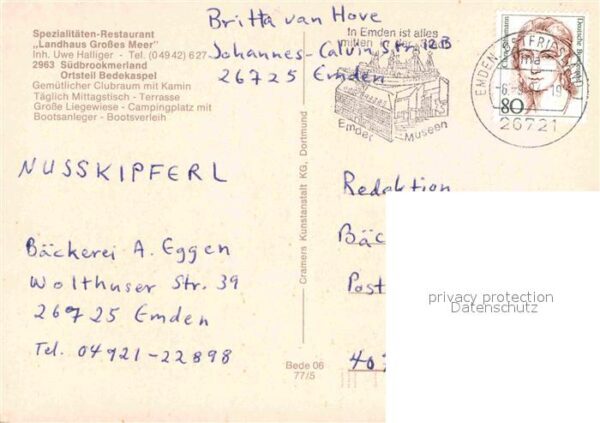 Spezialitäten-Restaurant
„Landhaus Großes Meer"
Inh. Uwe Halliger - Tel. (04942) 627
2963 Südbrookmerland
Ortsteil Bedekaspel
Gemütlicher Clubraum mit Kamin
Täglich Mittagstisch - Terrasse
Große Liegewiese - Campingplatz mit
Bootsanleger - Bootsverleih
Britta van Hove
Johannes-Calvin Str. 12B
26725 Emden
In Emden ist alles
mitten in der
Emder Museen
EMDEN, OSTFRIESL
ma
26721
Deutsche Bundespost
80
NUSSKIPFERL
Bäckerei A. Eggen
Wolthuser Str. 39
26725 Emden
Tel. 04921-22898
Cramers Kunstanstalt KG, Dortmund
Bede 06
77/5
Redaktion
Bäc
Post
40
privacy protection
Datenschutz